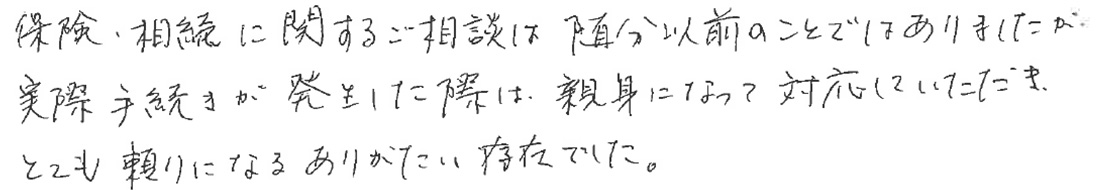 保険・相続に関するご相談は随分以前のことではありましたが
実際手続きが発生した際は、親身になって対応していただき、
とても頼りになるありがたい存在でした。